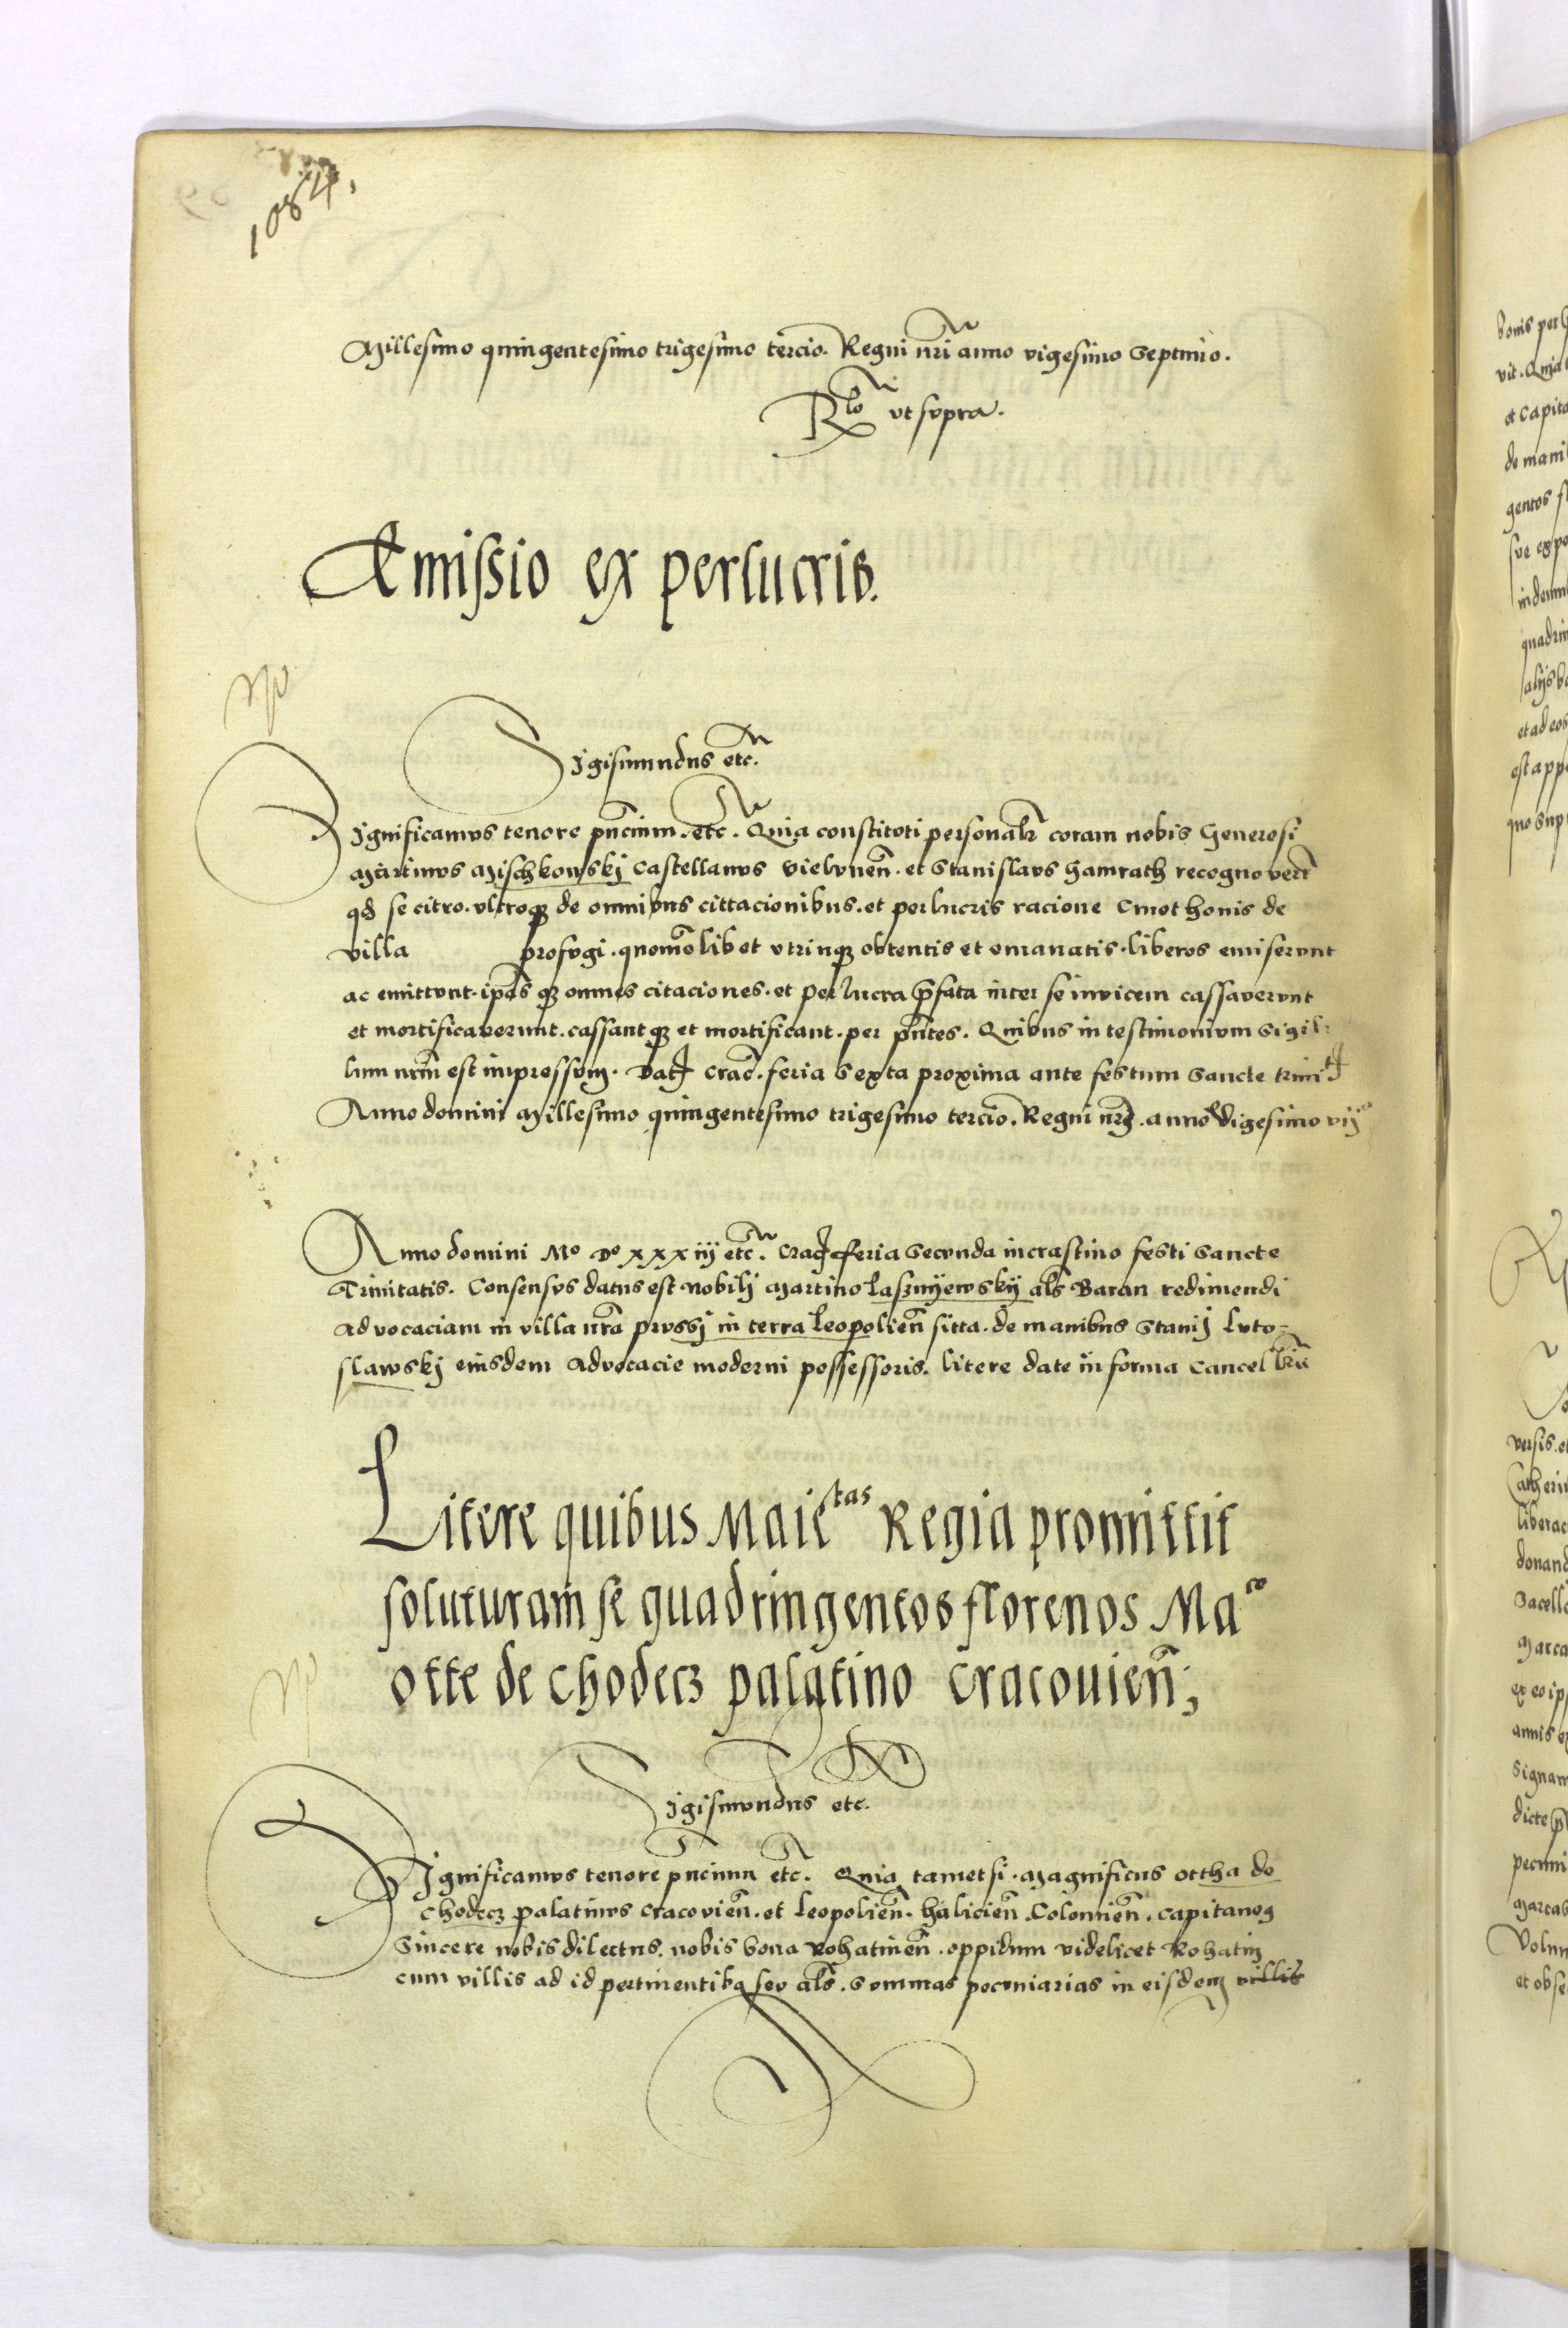 1084.
Millesimo quingentesimo trigesimo tercio. Regni nrĩ anno vigesimo Septimo.
Rlo vt supra.
Emissio ex perlucris.
Sigismundus etc.
Significamus tenore pñcium. etc. Quia constituti personalr coram nobis Generosi
Martinus Mischkowskj Castellanus vieluneñ. et Stanislaus Hamrath recognouert
qd se citro. vltroqz de omnibus cittacionibus. et perlucris racione Cmethonis de
villa profugi. quomõlibet vtrinqz obtentis et emanatis. liberos emiserunt
ac emittunt. ipãsqz omnes citaciones. et perlucra p̃fata inter se inuicem cassauerunt
et mortificauerunt. cassantqz et mortificant. per pñtes. Quibus in testimonium Sigil:
lum nrm̃ est impressum. Dat Crac. feria Sexta proxima ante festum Sancte trinit
Anno domini Millesimo quingentesimo trigesimo tercio. Regni nrj. anno vigesimo vijo
Anno domini Mo Do xxxiij etc. Crac feria Secunda incrastino festi Sancte
Trinitatis. Consensus datus est Nobilj Martino Lasznyewskij als Baran redimendi
aduocaciam in villa nrã prussj in terra Leopolieñ sitta. de manibus Stanij Luto=
slawskj eiusdem aduocacie moderni possessoris. litere date in forma Cancellriĩ
Litere quibus Maietas Regia promittit
soluturam se quadringentos florenos Maco
otte de chodecz palatino cracouieñ;
Sigismundus etc.
Significamus tenore pñcium etc. Quia tametsi. Magnificus ottha de
Chodecz palatinus Cracouieñ. et Leopolieñ. halicieñ. Colomieñ. Capitaneus
Sincere nobis dilectus. nobis bona Rohatineñ. oppidum videlicet Rohatin
cum villis ad id pertinentibus seu als. Summas pecuniarias in eisdem villis